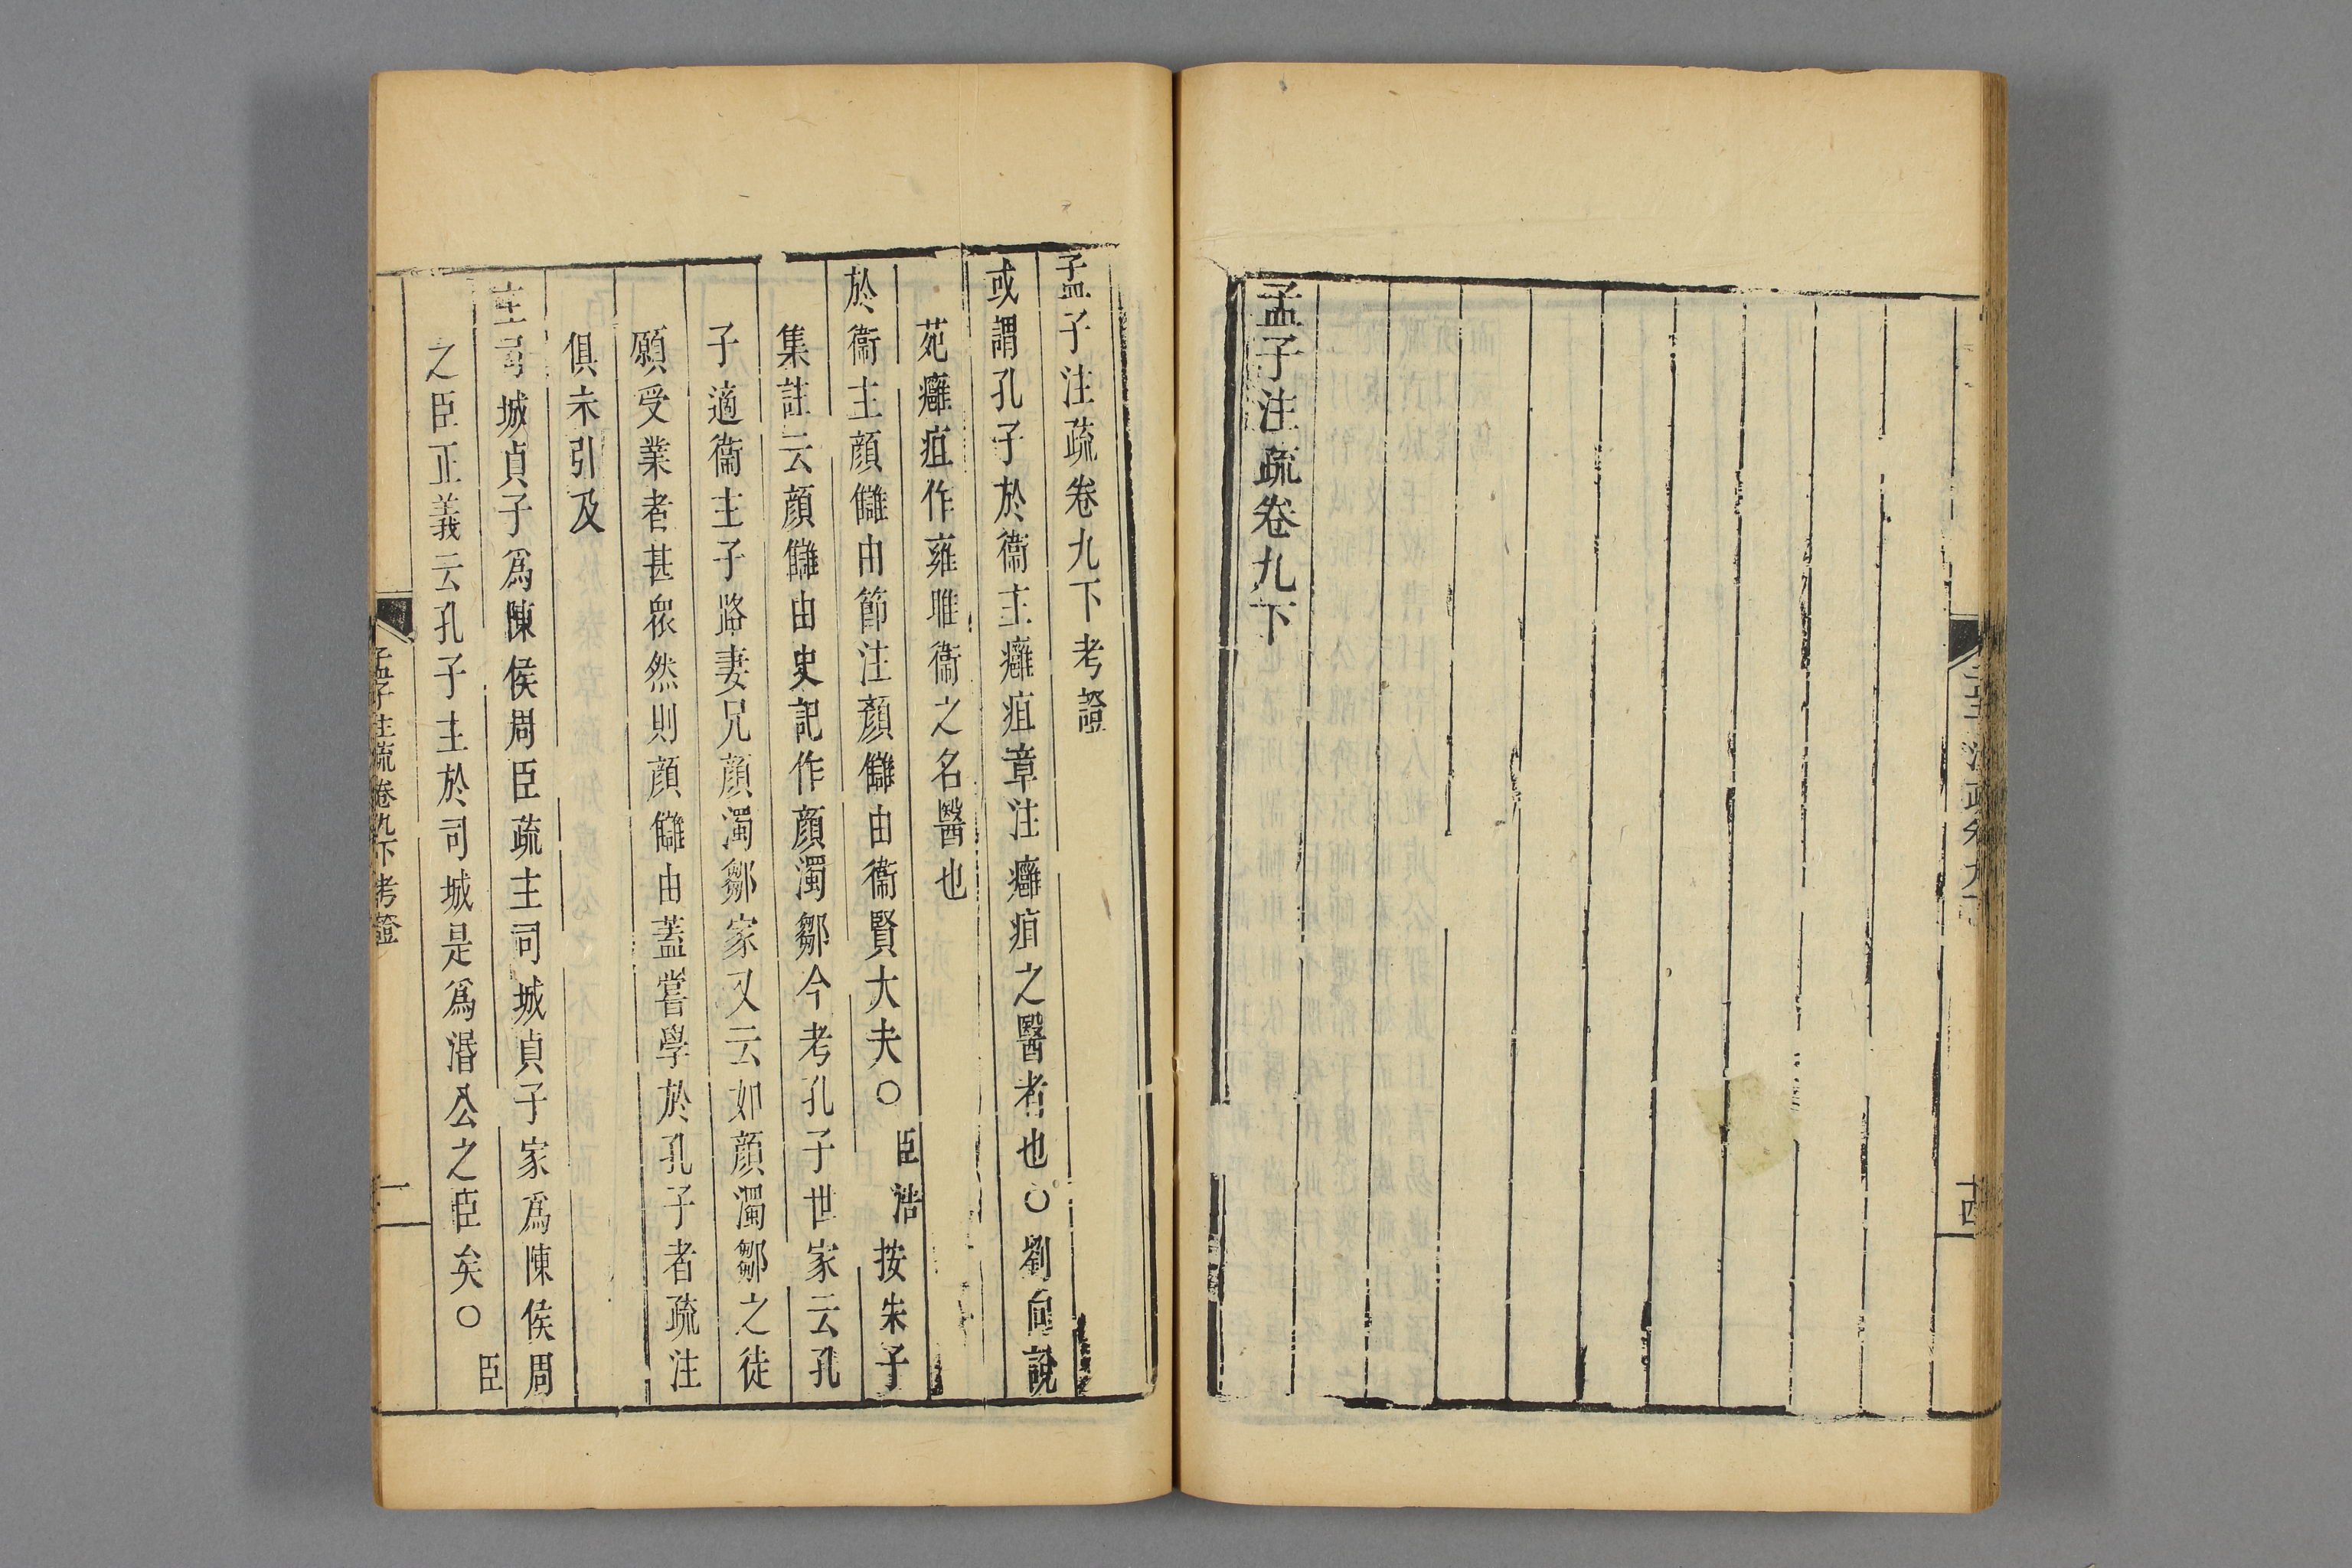 孟子注疏卷九下
孟子注疏卷九下考證
或謂孔子於衞主癰疽章注癰疽之醫者也○劉向說
苑癰疽作雍雎衞之名醫也
於衞主顔讎由節注顔讎由衞賢大夫○臣浩按朱子
集註云顔讎由史記作顔濁鄒今考孔子世家云孔
子適衞主子路妻兄顔濁鄒家又云如顔濁鄒之徒
願受業者甚衆然則顔讎由蓋嘗學於孔子者疏注
俱未引及
主司城貞子爲陳侯周臣疏主司城貞子家爲陳侯周
之臣正義云孔子主於司城是爲湣公之臣矣○臣
孟子注疏卷九下考證
一